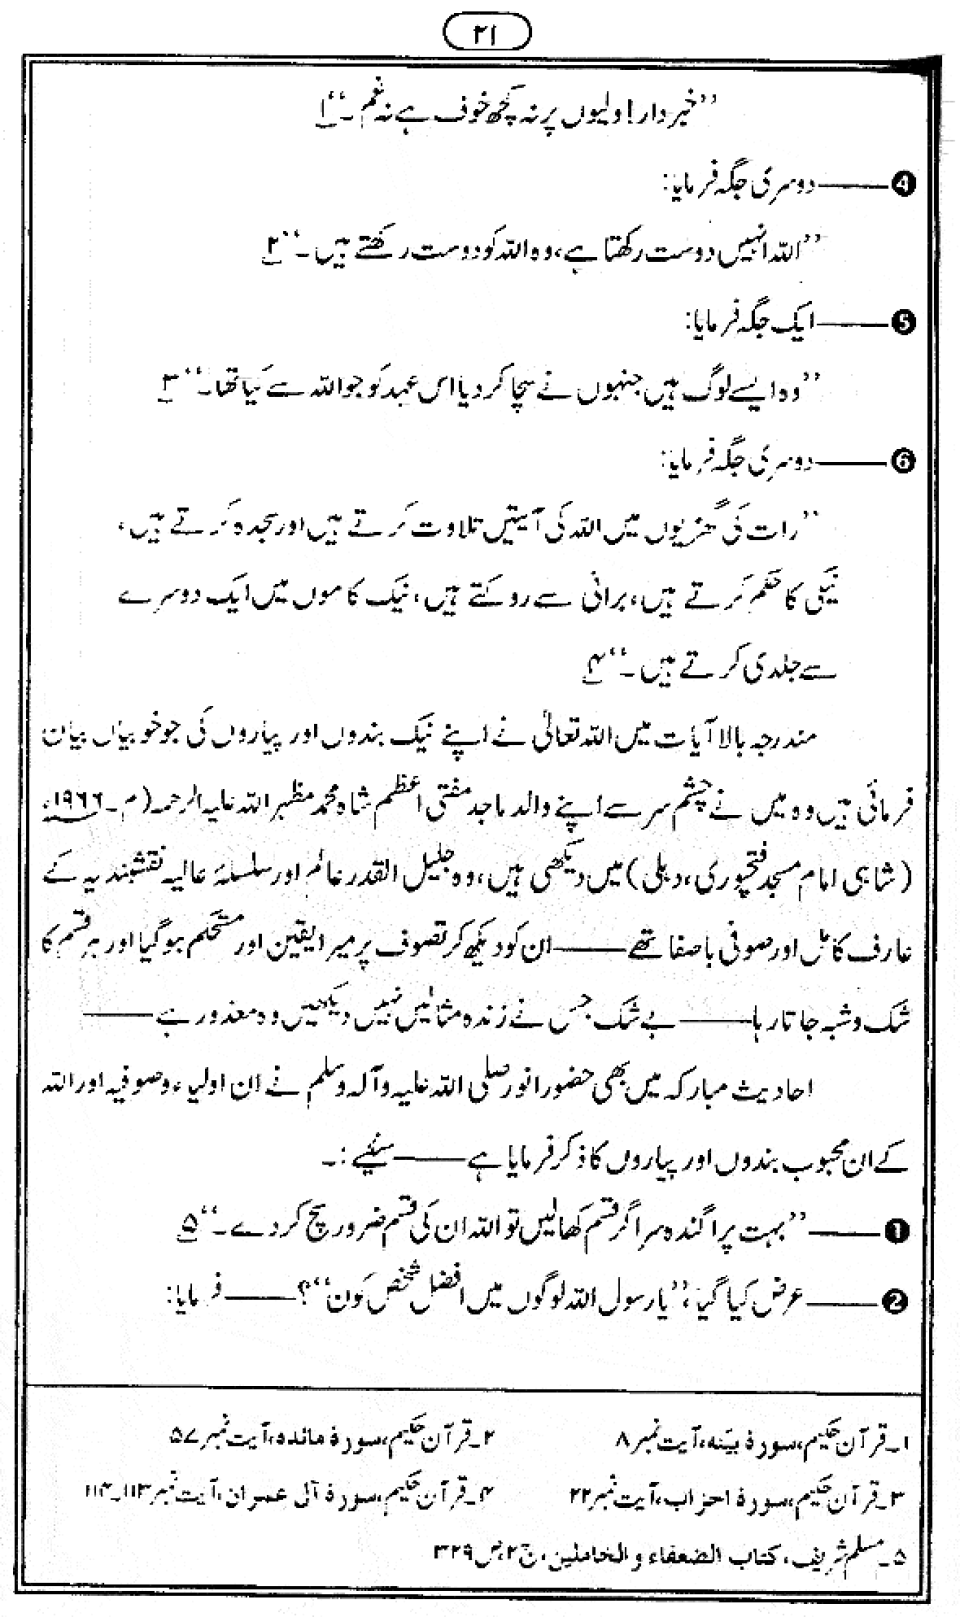 ۲۱
”خبردار! ولیوں پر نہ کچھ خوف ہے نہ غم۔“۱
❹——دوسری جگہ فرمایا:
”اللہ انہیں دوست رکھتا ہے، وہ اللہ کو دوست رکھتے ہیں۔“۲
❺——ایک جگہ فرمایا:
”وہ ایسے لوگ ہیں جنہوں نے سچا کر دیا اس عہد کو جو اللہ سے کیا تھا۔“۳
❻——دوسری جگہ فرمایا:
”رات کی گھڑیوں میں اللہ کی آیتیں تلاوت کرتے ہیں اور سجدہ کرتے ہیں،
نیکی کا حکم کرتے ہیں، برائی سے روکتے ہیں، نیک کاموں میں ایک دوسرے
سے جلدی کرتے ہیں۔“۴
مندرجہ بالا آیات میں اللہ تعالیٰ نے اپنے نیک بندوں اور پیاروں کی جو خوبیاں بیان
فرمائی ہیں وہ میں نے چشم سر سے اپنے والد ماجد مفتی اعظم شاہ محمد مظہر اللہ علیہ الرحمہ (م۔۱۹۶۶ء
(شاہی امام مسجد فتحپوری، دہلی) میں دیکھی ہیں، وہ جلیل القدر عالم اور سلسلۂ عالیہ نقشبندیہ کے
عارف کامل اور صوفی باصفا تھے——ان کو دیکھ کر تصوف پر میرا یقین اور مستحکم ہو گیا اور ہر قسم کا
شک و شبہ جاتا رہا——بے شک جس نے زندہ مثالیں نہیں دیکھیں وہ معذور ہے——
احادیث مبارکہ میں بھی حضور انور صلی اللہ علیہ وآلہ وسلم نے ان اولیاء وصوفیہ اور اللہ
کے ان محبوب بندوں اور پیاروں کا ذکر فرمایا ہے——سنئیے:۔
❶——”بہت پراگندہ سر اگر قسم کھالیں تو اللہ ان کی قسم ضرور سچ کر دے۔“۵
❷——عرض کیا گیا، ”یا رسول اللہ لوگوں میں افضل شخص کون“؟——فرمایا:
۱۔قرآن حکیم، سورۂ بینہ، آیت نمبر ۸
۲۔قرآن حکیم، سورۂ مائدہ، آیت نمبر ۵۷
۳۔قرآن حکیم، سورۂ احزاب، آیت نمبر ۲۲
۴۔قرآن حکیم، سورۂ آل عمران، آیت نمبر ۱۱۳۔۱۱۴
۵۔مسلم شریف، کتاب الضعفاء والخاملین، ج۲، ص۳۲۹